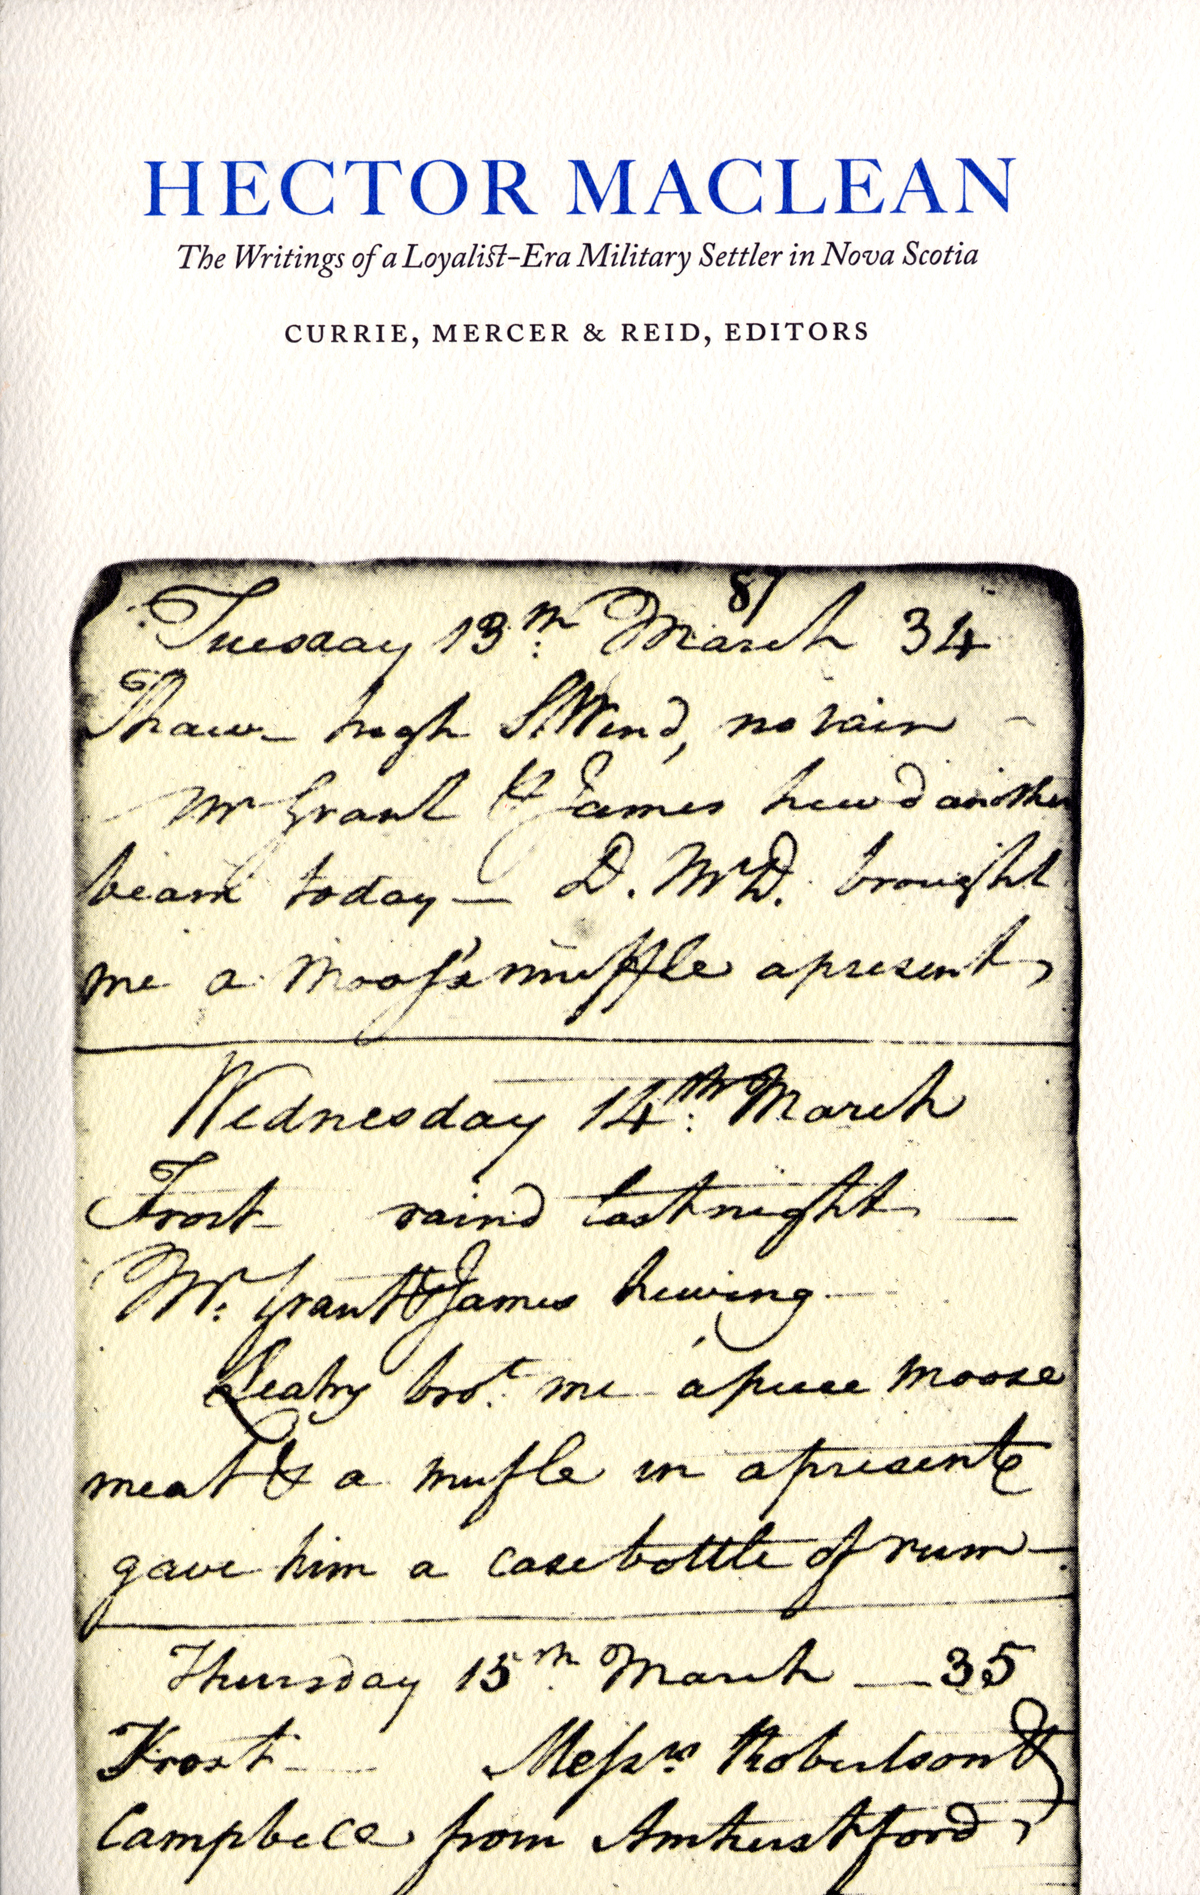 HECTOR MACLEAN
The Writings of a Loyalist-Era Military Settler in Nova Scotia
CURRIE, MERCER & REID, EDITORS
87
Tuesday 13.th March 34
Thaw – high S. Wind, no rain –
Mr Grant & James hewd another
beam today – D. McD. brought
me a Moose's muffle a present,
Wednesday 14.th March
Frost raind last night –
Mr. Grant & James hewing –
Leahy bro.t me a piece moose
meat & a mufle in a present &
gave him a case bottle of rum –
Thursday 15.th March – 35
Frost – Messrs. Robertson &
Campbell from Amherst ford,